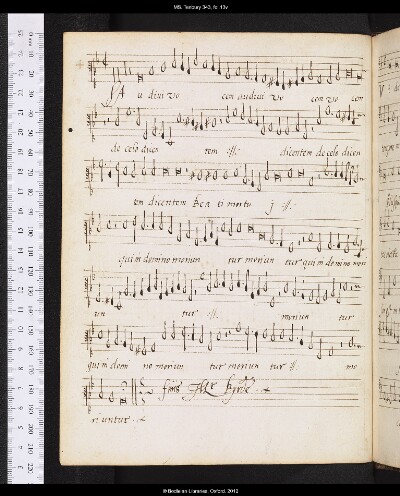 MS. Tenbury 343, fol. 13v
Audivi vo cem audivi vo cem vo cem
de celo dicen tem :||: dicentem de celo dicen
tem dicentem Bea ti mortu j :||:
qui in domino moriun tur moriun tur qui in domino mori
un tur :||: moriun tur
qui in domi no moriun tur moriun tur :||: mo
finis Mr Byrde
riuntur
© Bodleian Libraries, Oxford, 2013